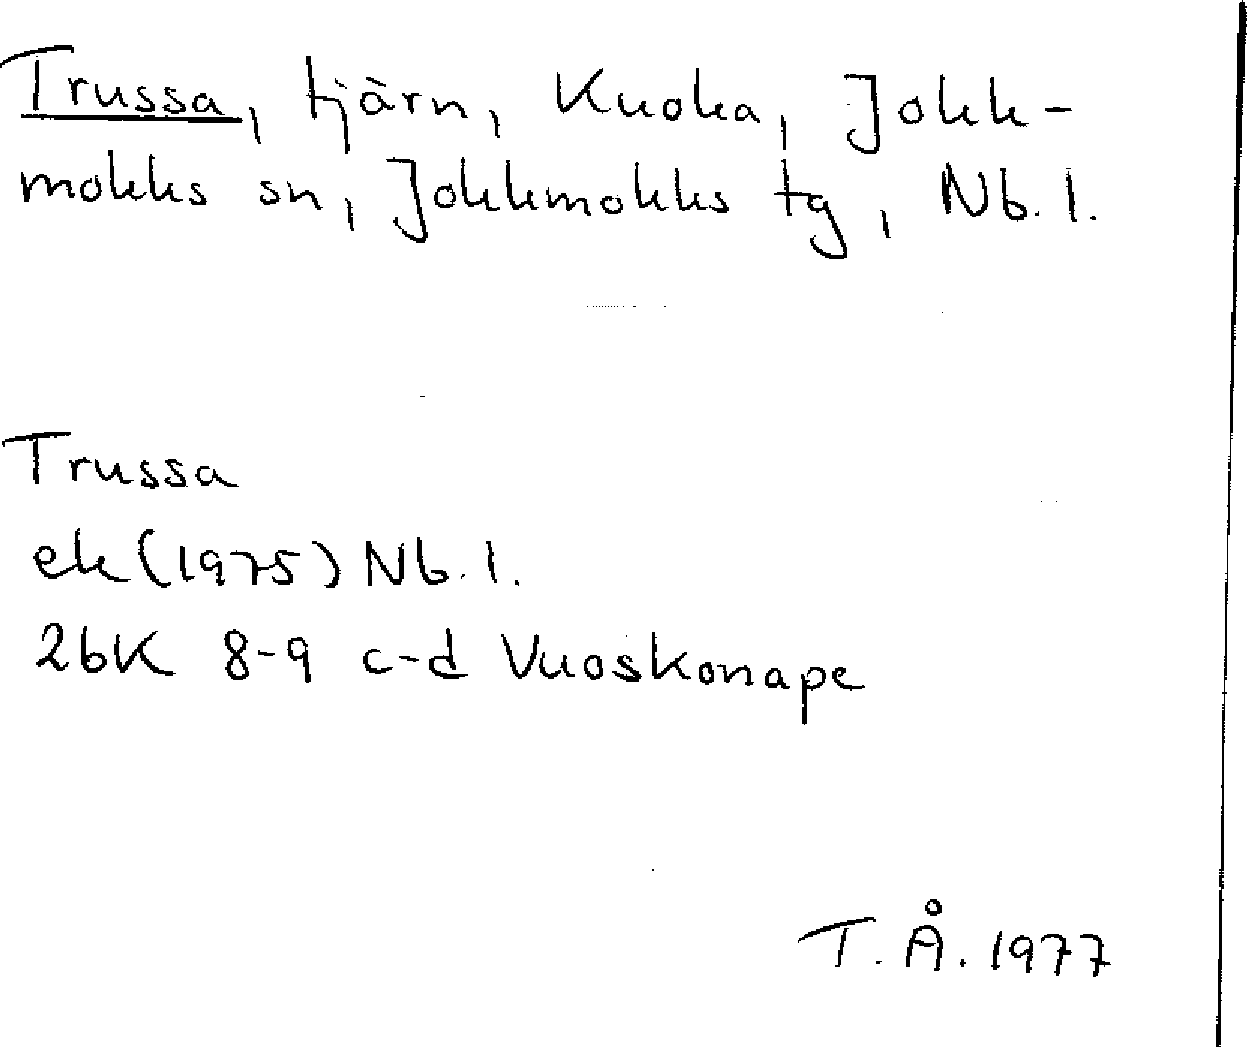 Trussa, tjärn, Kuoka, Jokk-
mokks sn, Jokkmokks tg, Nb. l.
Trussa
ek (1975) Nb. l.
26K 8-9 c-d Vuoskonape
T. Å. 1977